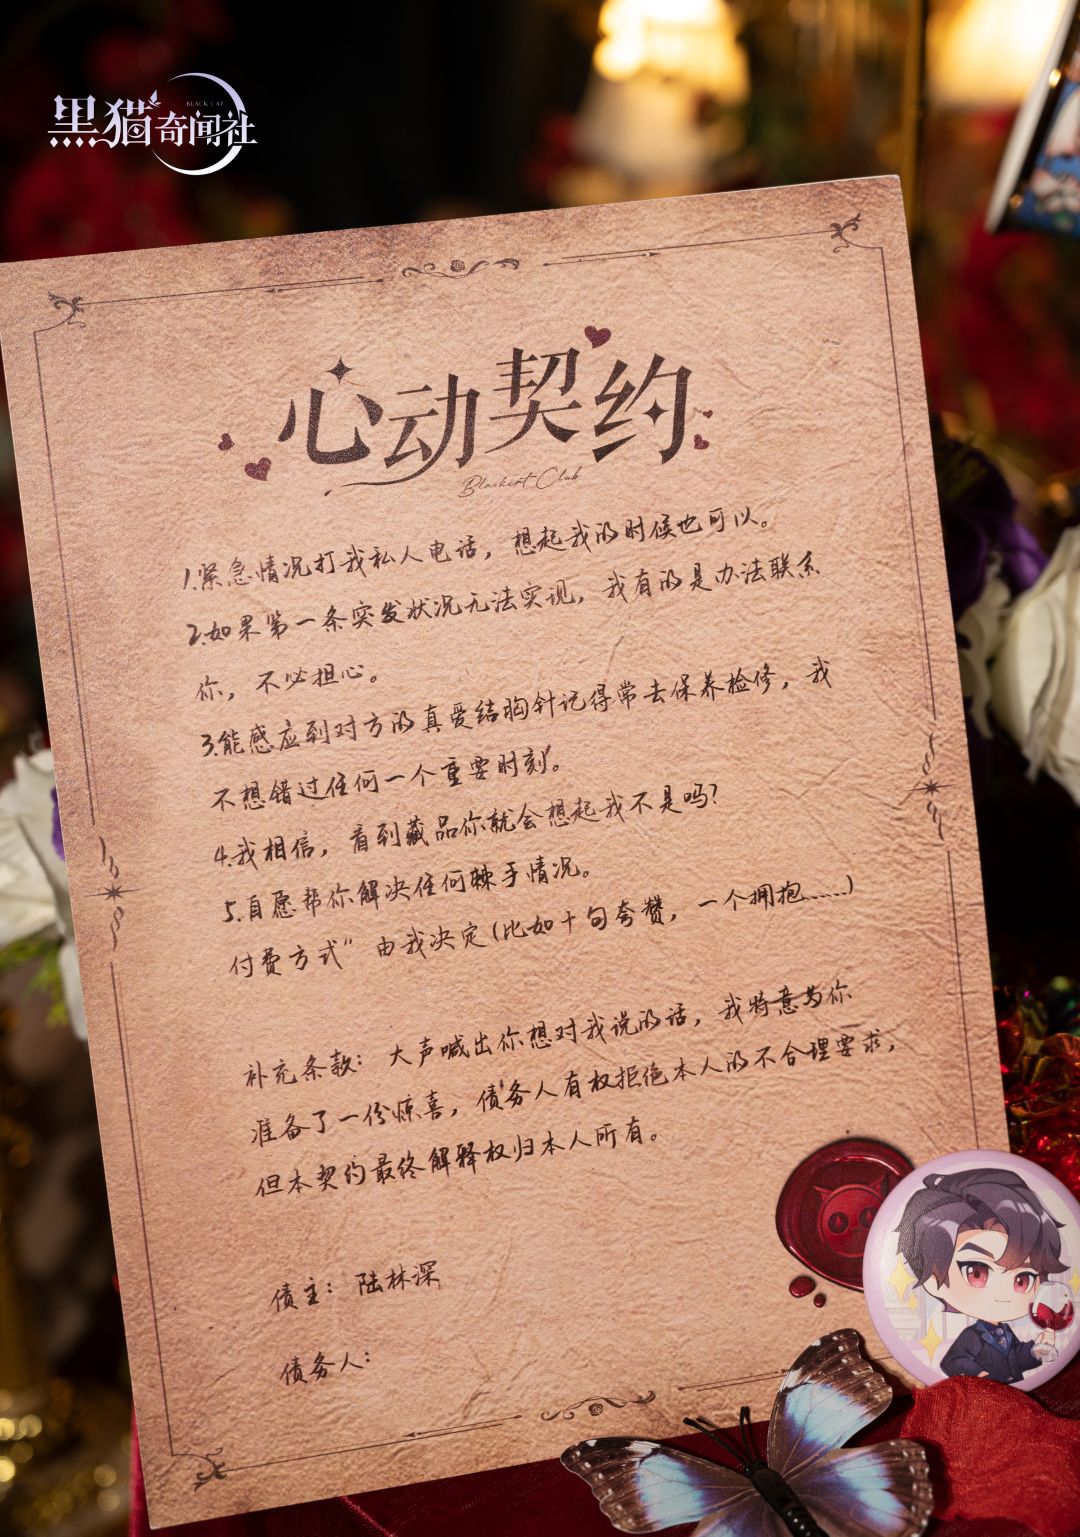 BLACK CAT
黑猫奇闻社
心动契约
Blackcat Club
1.紧急情况打我私人电话，想起我的时候也可以。
2.如果第一条突发状况无法实现，我有的是办法联系
你，不必担心。
3.能感应到对方的真爱结胸针记得常去保养检修，我
不想错过任何一个重要时刻。
4.我相信，看到藏品你就会想起我不是吗？
5.自愿帮你解决任何棘手情况。
付费方式"由我决定（比如十句夸赞，一个拥抱......）
补充条款：大声喊出你想对我说的话，我特意为你
准备了一份惊喜，债务人有权拒绝本人的不合理要求，
但本契约最终解释权归本人所有。
债主：陆林深
债务人：